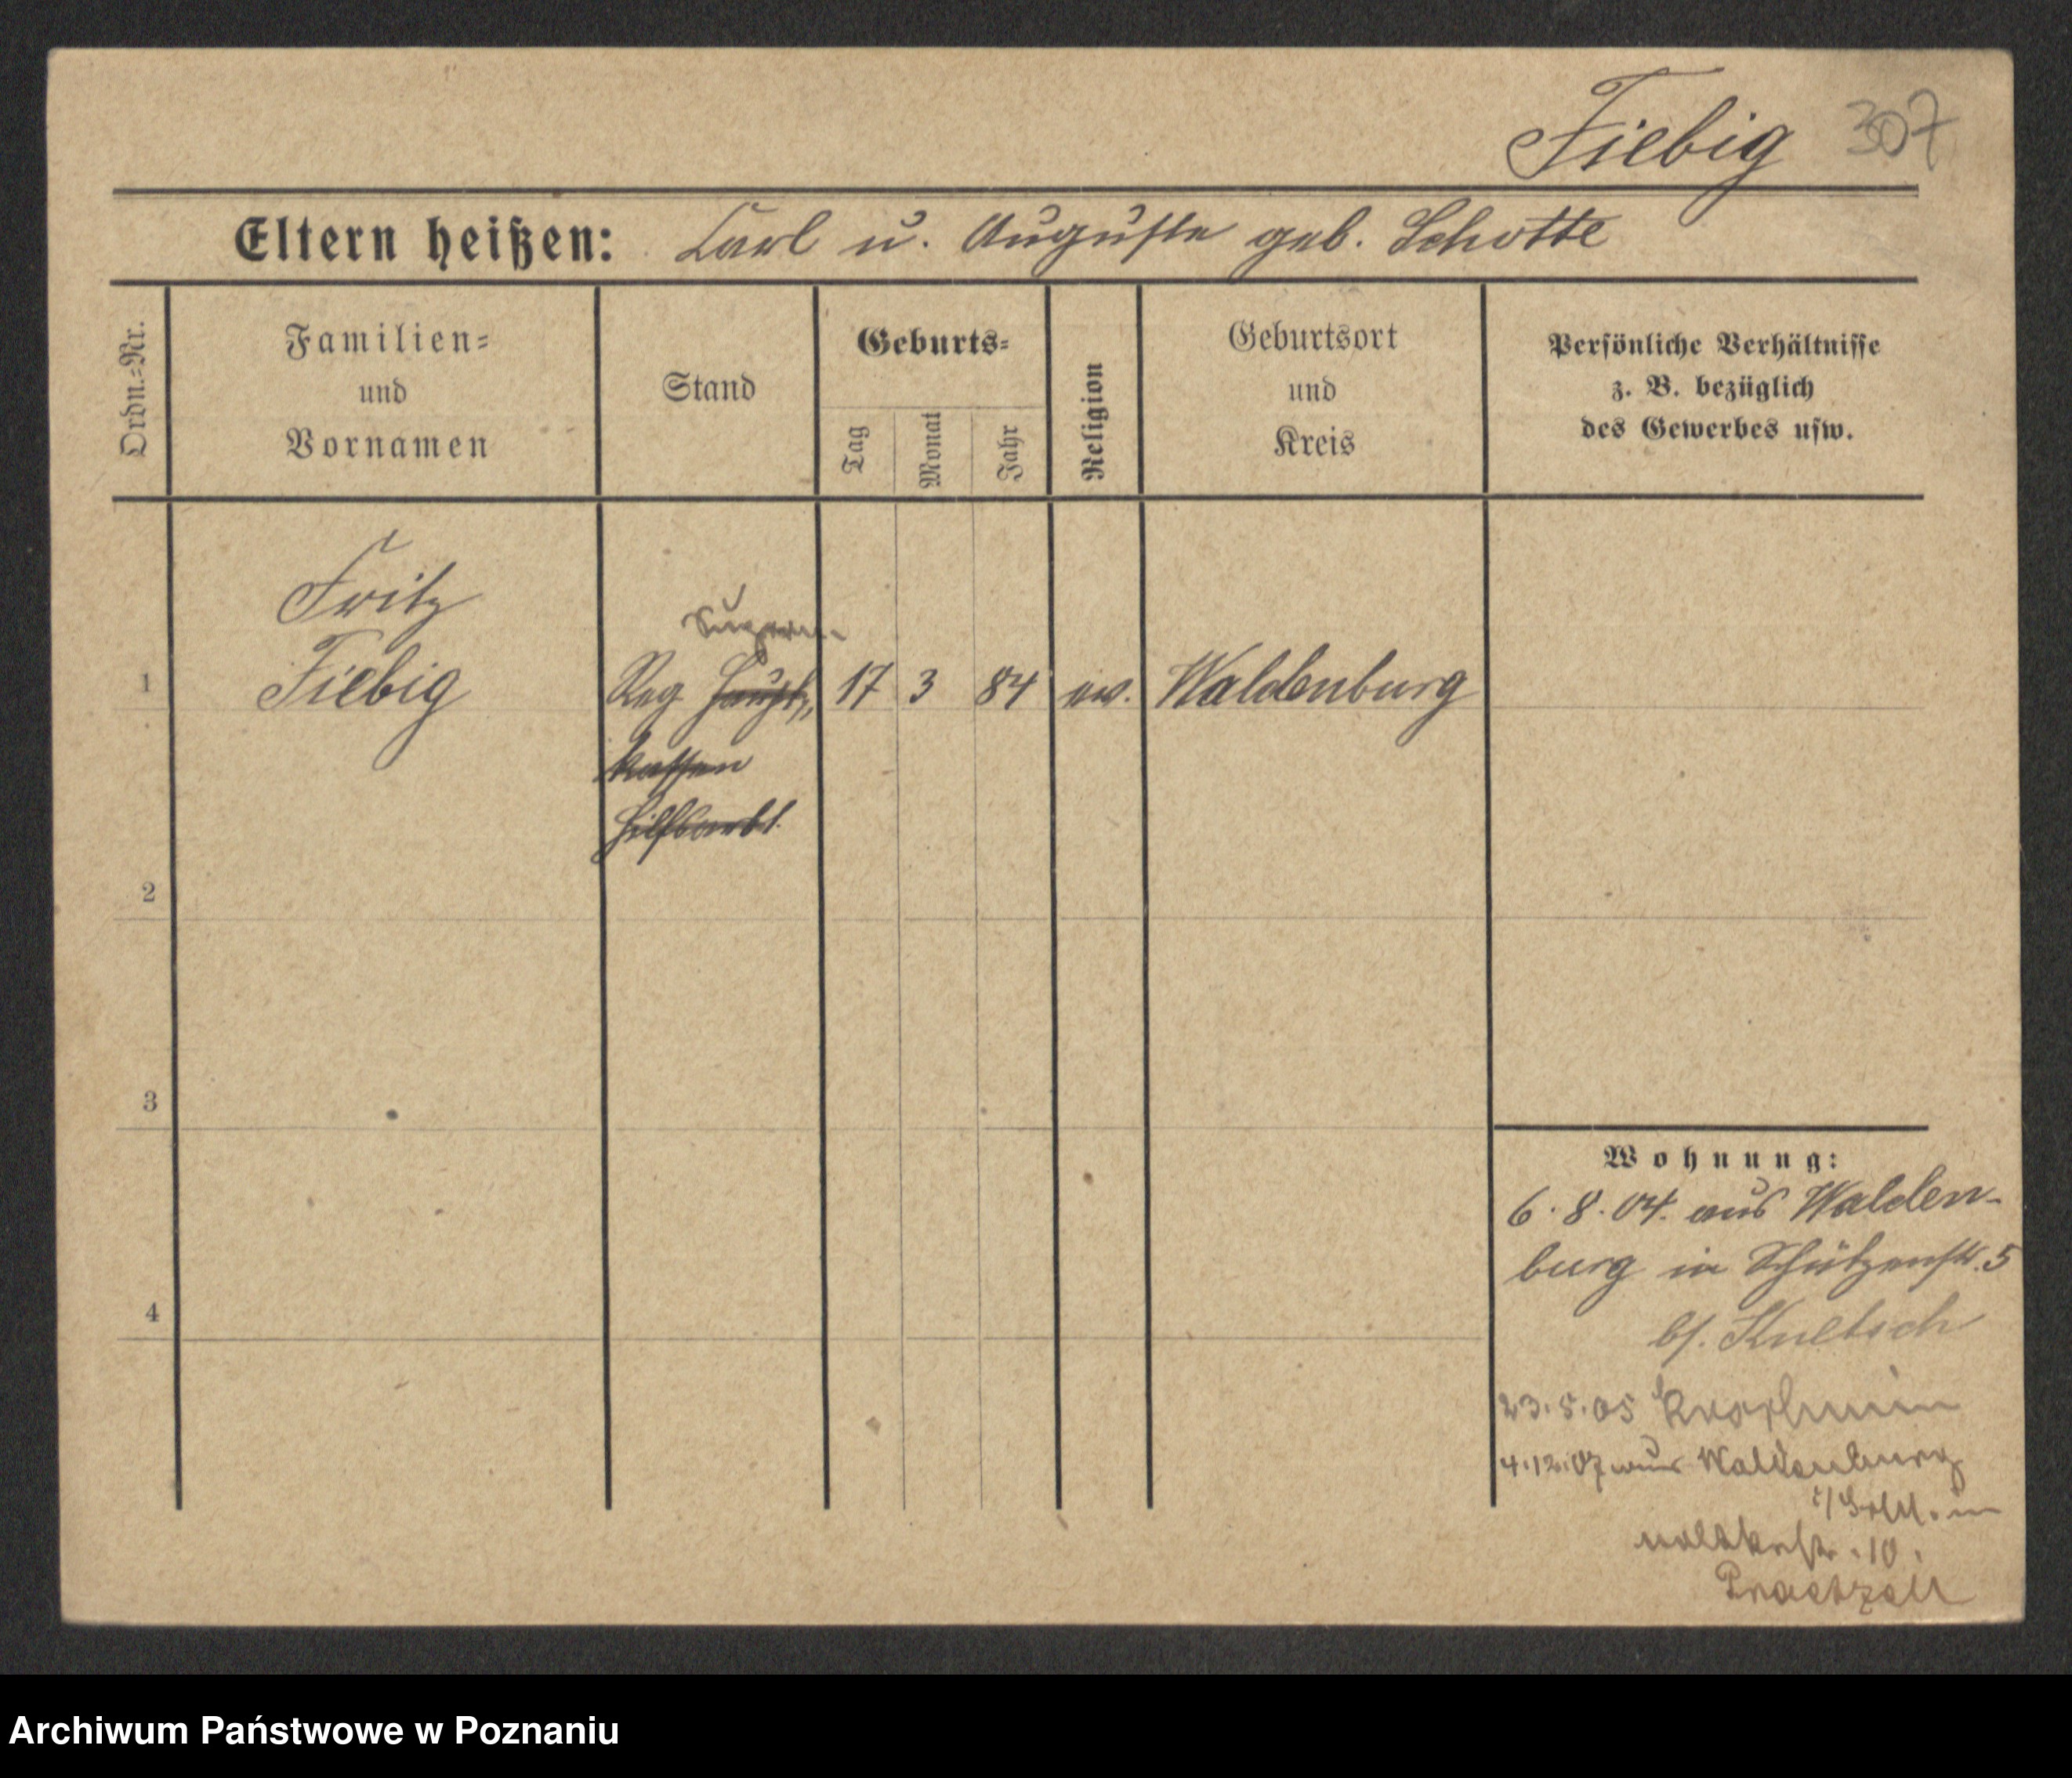 Fiebig 307
Eltern heißen: Carl u. Auguste geb. Schotte
Ordn.-Nr.
Familien-
und
Vornamen
Stand
Geburts-
Tag
Monat
Jahr
Religion
Geburtsort
und
Kreis
Persönliche Verhältnisse
z. B. bezüglich
des Gewerbes usw.
Fritz
Supern.
1 Fiebig Reg Haupt 17 3 84 ev. Waldenburg
kassen
Hilfsarbt.
2
3
4
Wohnung:
6.8.04. aus Walden-
burg in Schützenstr. 5
bs.
23.5.05
4.12.07 aus Waldenburg
i/Schl. in
Moltkestr. 10.
Praetzell
Archiwum Państwowe w Poznaniu